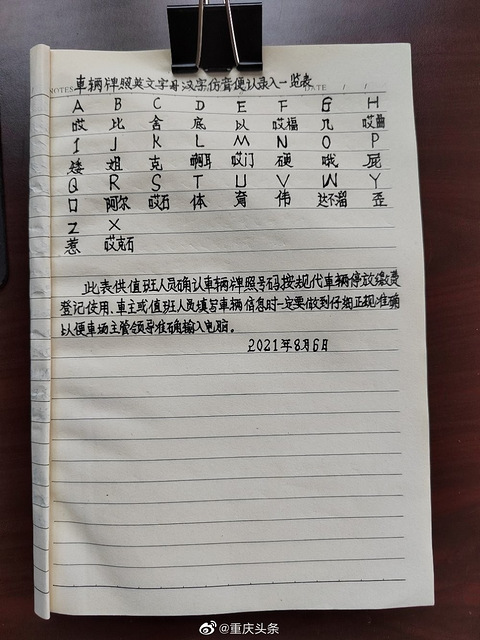 车辆牌照英文字母汉字仿音便认录入一览表
NOTES
DATE / /
A B C D E F G H
哎 比 舍 底 以 哎福 几 哎曲
I J K L M N O P
矮 姐 克 啊耳 哎门 硒 哦 屁
Q R S T U V W Y
口 阿尔 哎石 体 育 伟 达不溜 歪
Z X
惹 哎克石
此表供值班人员确认车辆牌照号码按规代车辆停放缴费
登记使用、车主或值班人员填写车辆信息时一定要做到仔细正规准确
以便车场主管领导准确输入电脑。
2021年8月6日
@重庆头条